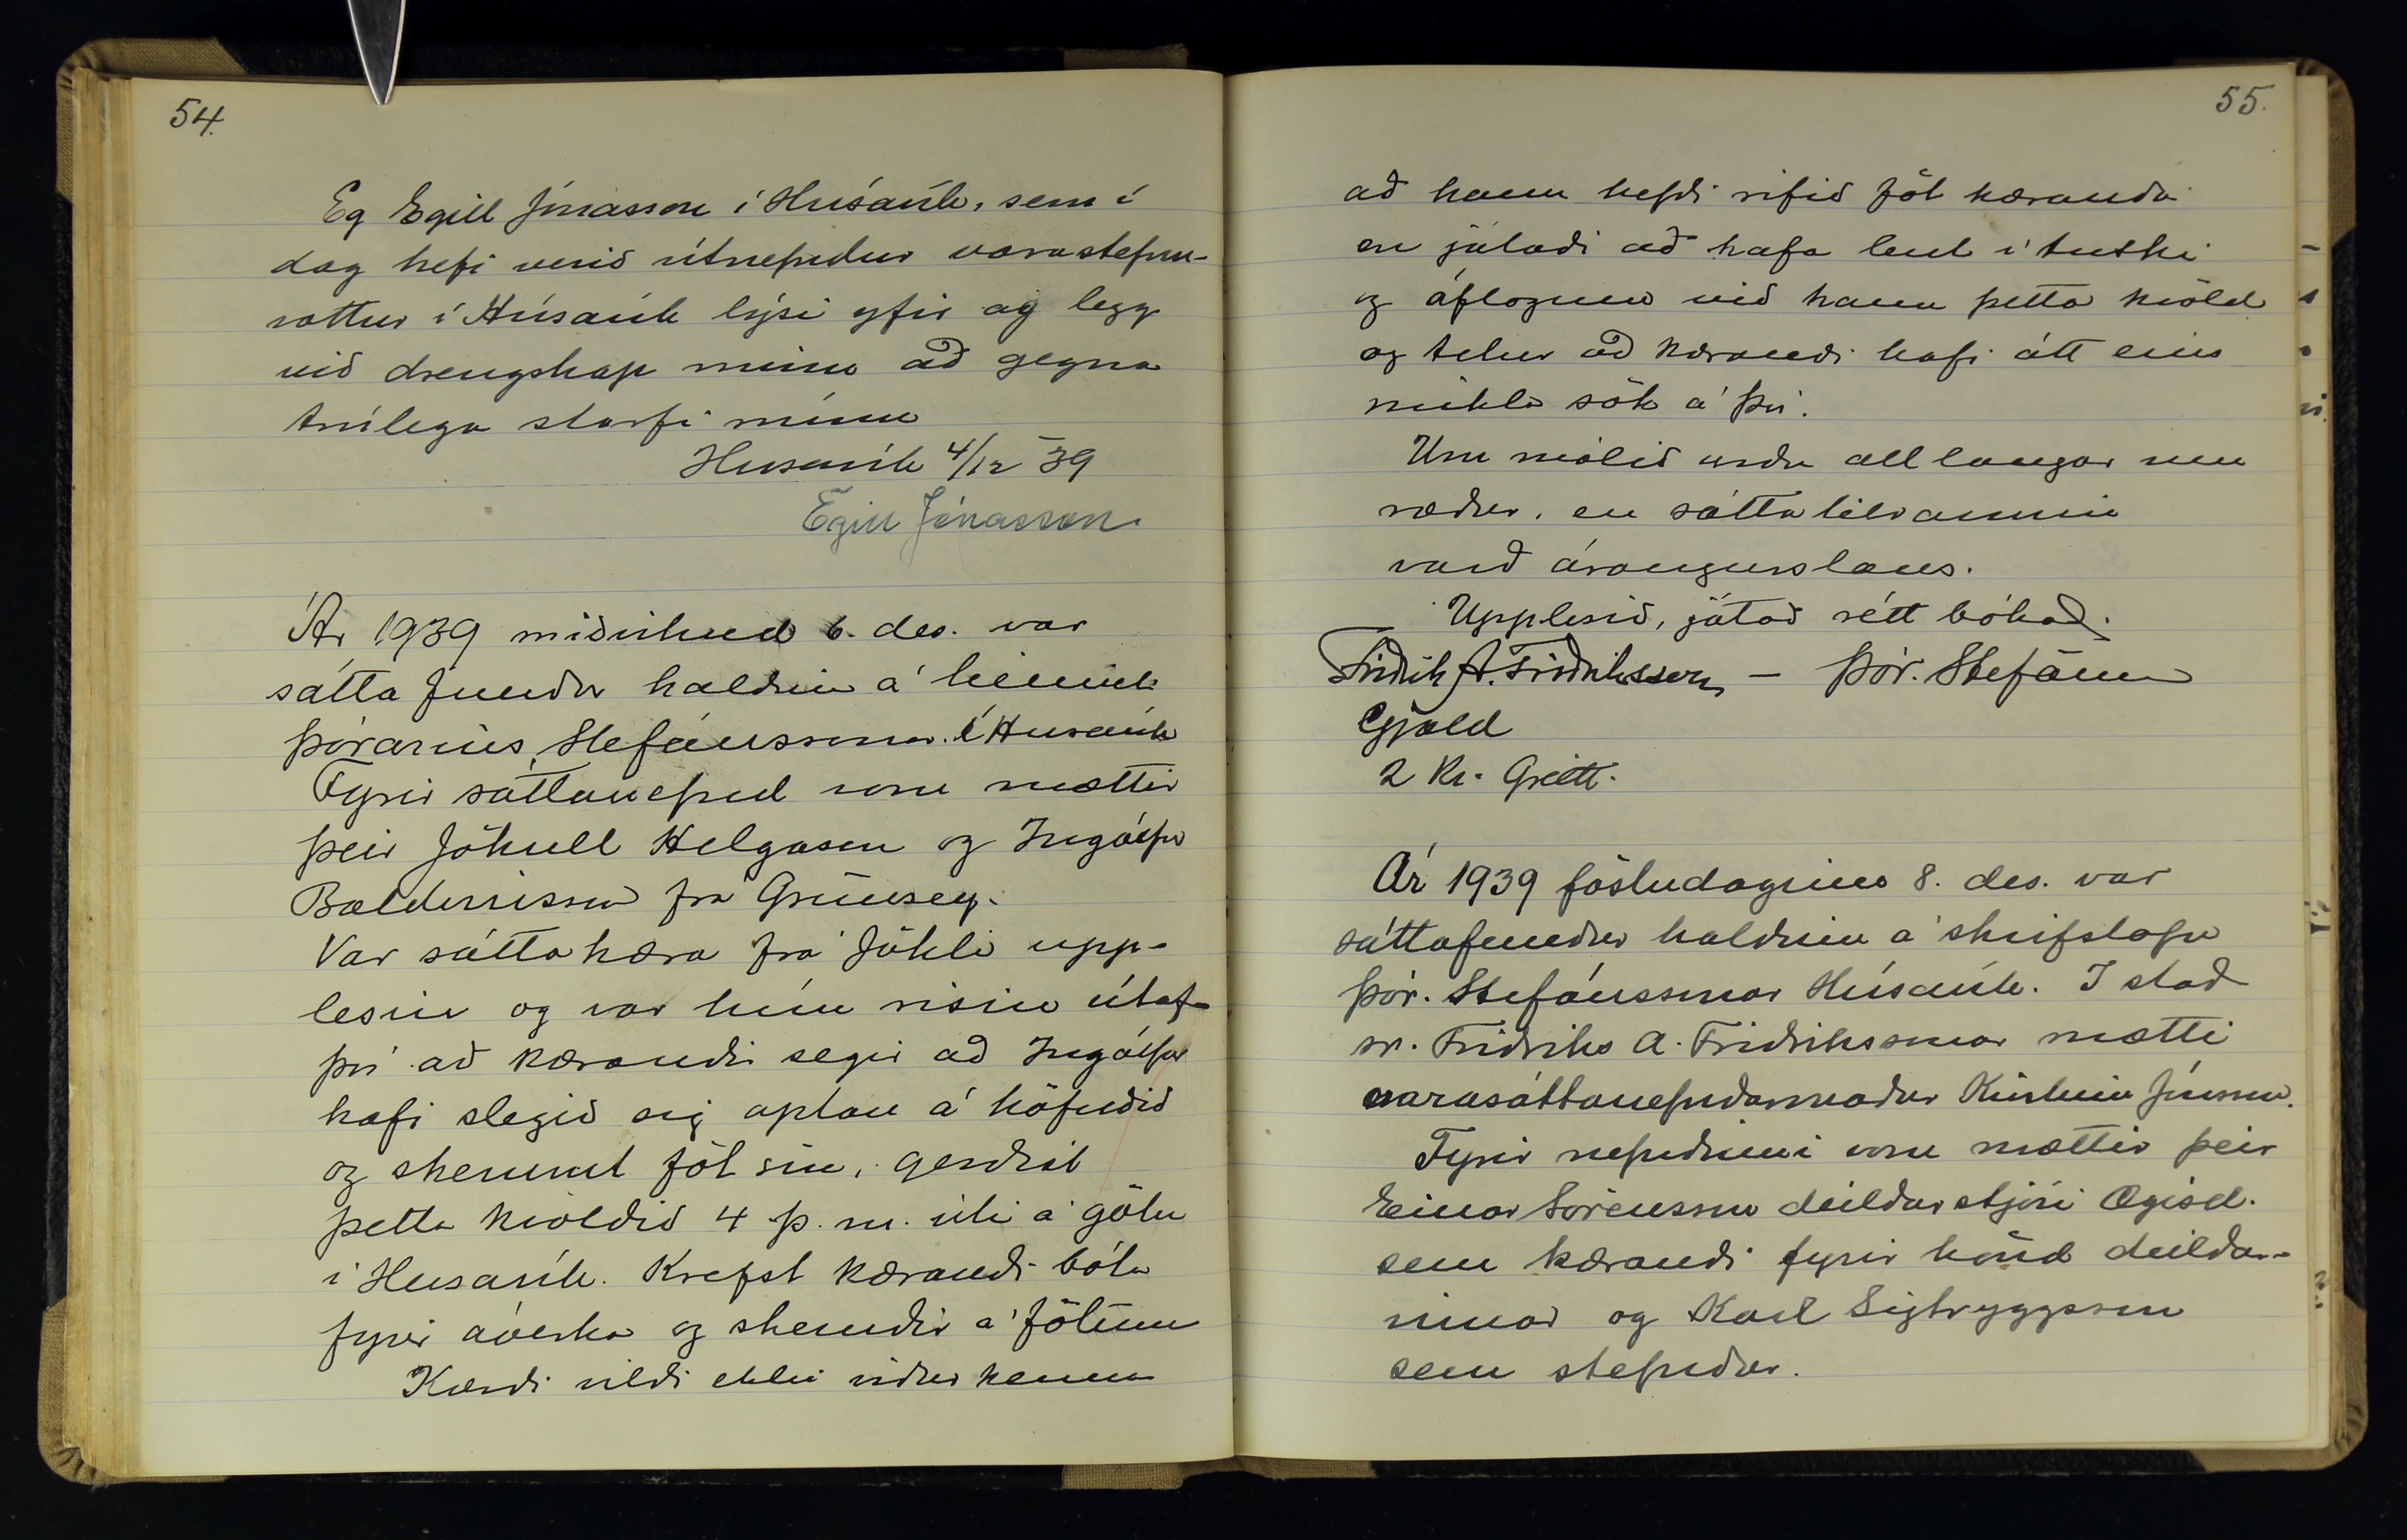 54.
Eg Egill Jónasson í Húsavík, sem í
dag hefi verið útnefndur varastefnu-
vottur í Húsavík lýsi yfir og legg
við drengskap minn að gegna
trúlega starfi mínu
Husavík 4/12 39
Egill Jónasson.
Ár 1939 miðvikud 6. des. var
sátta fundur haldinn á heimili
Þórarins Stefánssonar í Husavík
Fyrir sáttanefnd voru mættir
þeir Jökull Helgason og Ingólfur
Baldvinsson frá Grímsey.
Var sáttakæra frá Jökli upp-
lesin og var hún risin útaf
því að kærandi segir að Ingólfur
hafi slegið sig aptan á höfuðið
og skemmt föt sín, gerðist
þetta kvöldið 4 þ. m. úti á götu
í Husavík. Krefst kærandi bóta
fyrir áverka og skemdir á fötum
Kærði vildi ekki viðurkenna
55.
að hann hefði rifið föt kæranda
en játaði að hafa lent í tuski
og áflogum við hann þetta kvöld
og telur að kærandi hafi átt eins
mikla sök á því.
Um málið urðu all langar um
ræður, en sátta tilraunin
varð árangurslaus.
Upplesið, játað rétt bókað.
Friðrik A. Friðriksson – Þór. Stefánss
Gjald
2 Kr. Greitt.
Ár 1939 föstudaginn 8. des. var
sáttafundur haldinn á skrifstofu
Þór. Stefánssonar Húsavík. I stað
sr. Friðriks A. Friðrikssonar mætti
varasáttanefndarmaður Kristinn Jónsson.
Fyrir nefndinni voru mættir þeir
Einar Sörensson deildarstjóri Ægisd.
sem kærandi fyrir hönd deildar-
innar og Karl Sigtryggsson
sem stefndur.